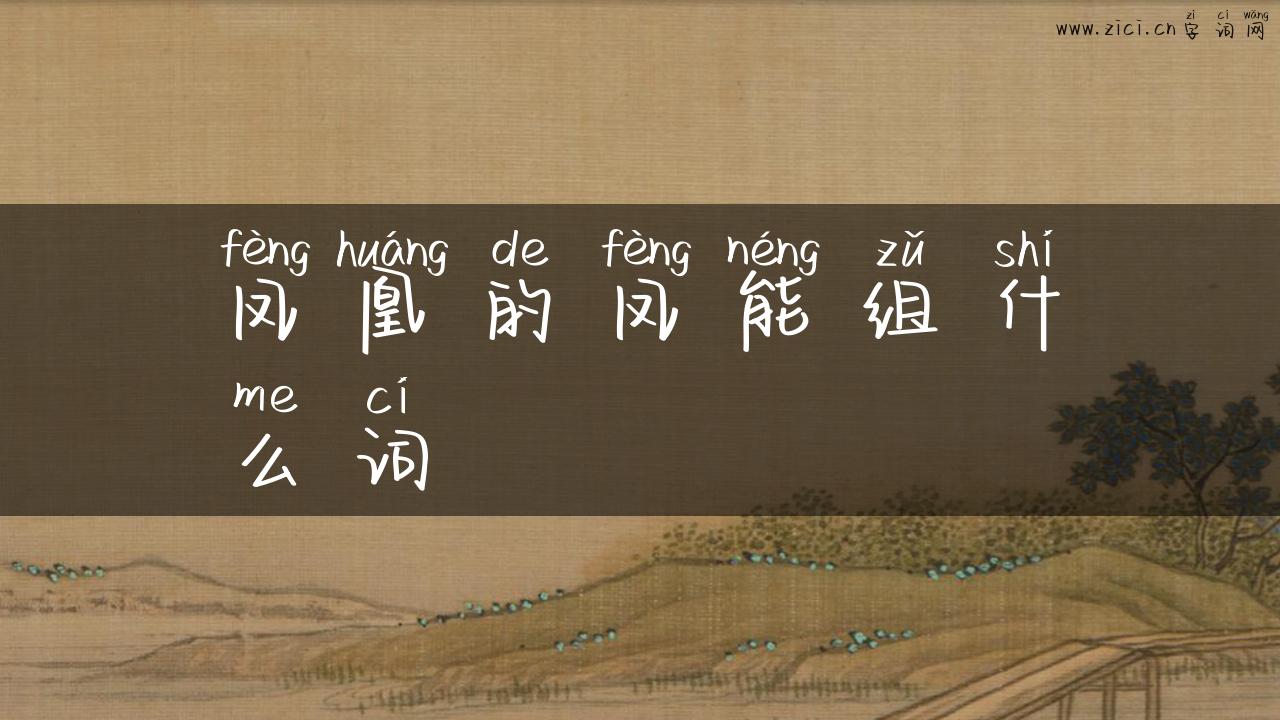 zì cí wǎng
www.zici.cn 字词网
fèng huáng de fèng néng zǔ shí
凤凰的凤能组什
me cí
么词